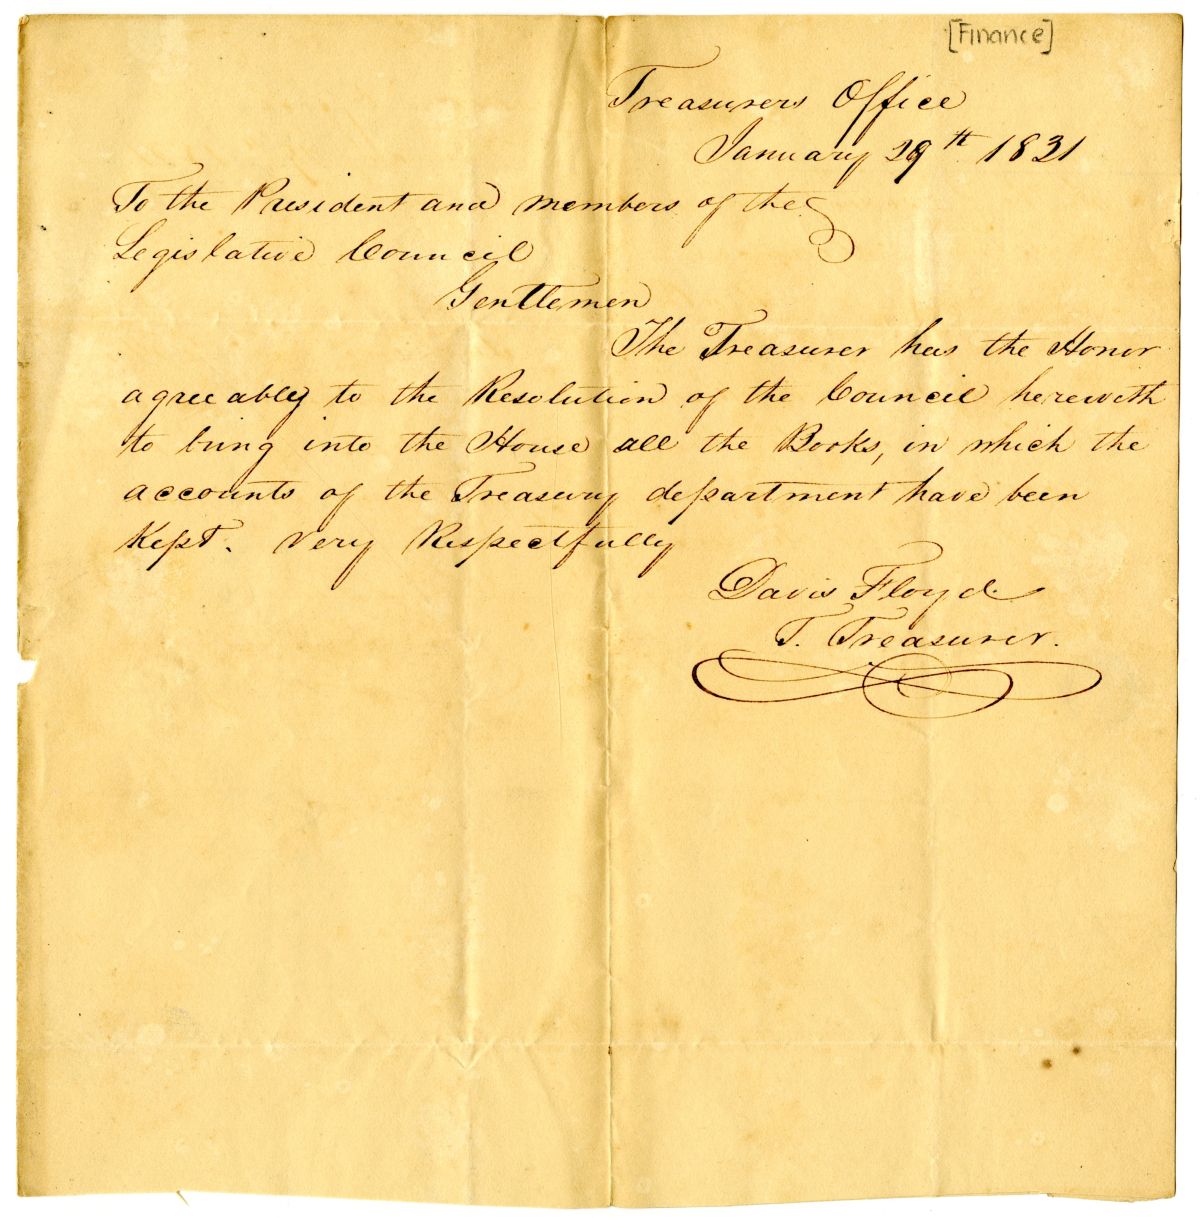 [Finance]
Treasurers Office
January 29th 1831
To the President and members of the
Legislative Council
Gentlemen
The Treasurer has the Honor
agreeably to the Resolution of the Council herewith
to bring into the House all the Books, in which the
accounts of the Treasury department have been
Kept. Very Respectfully
Davis Floyd
T. Treasurer.